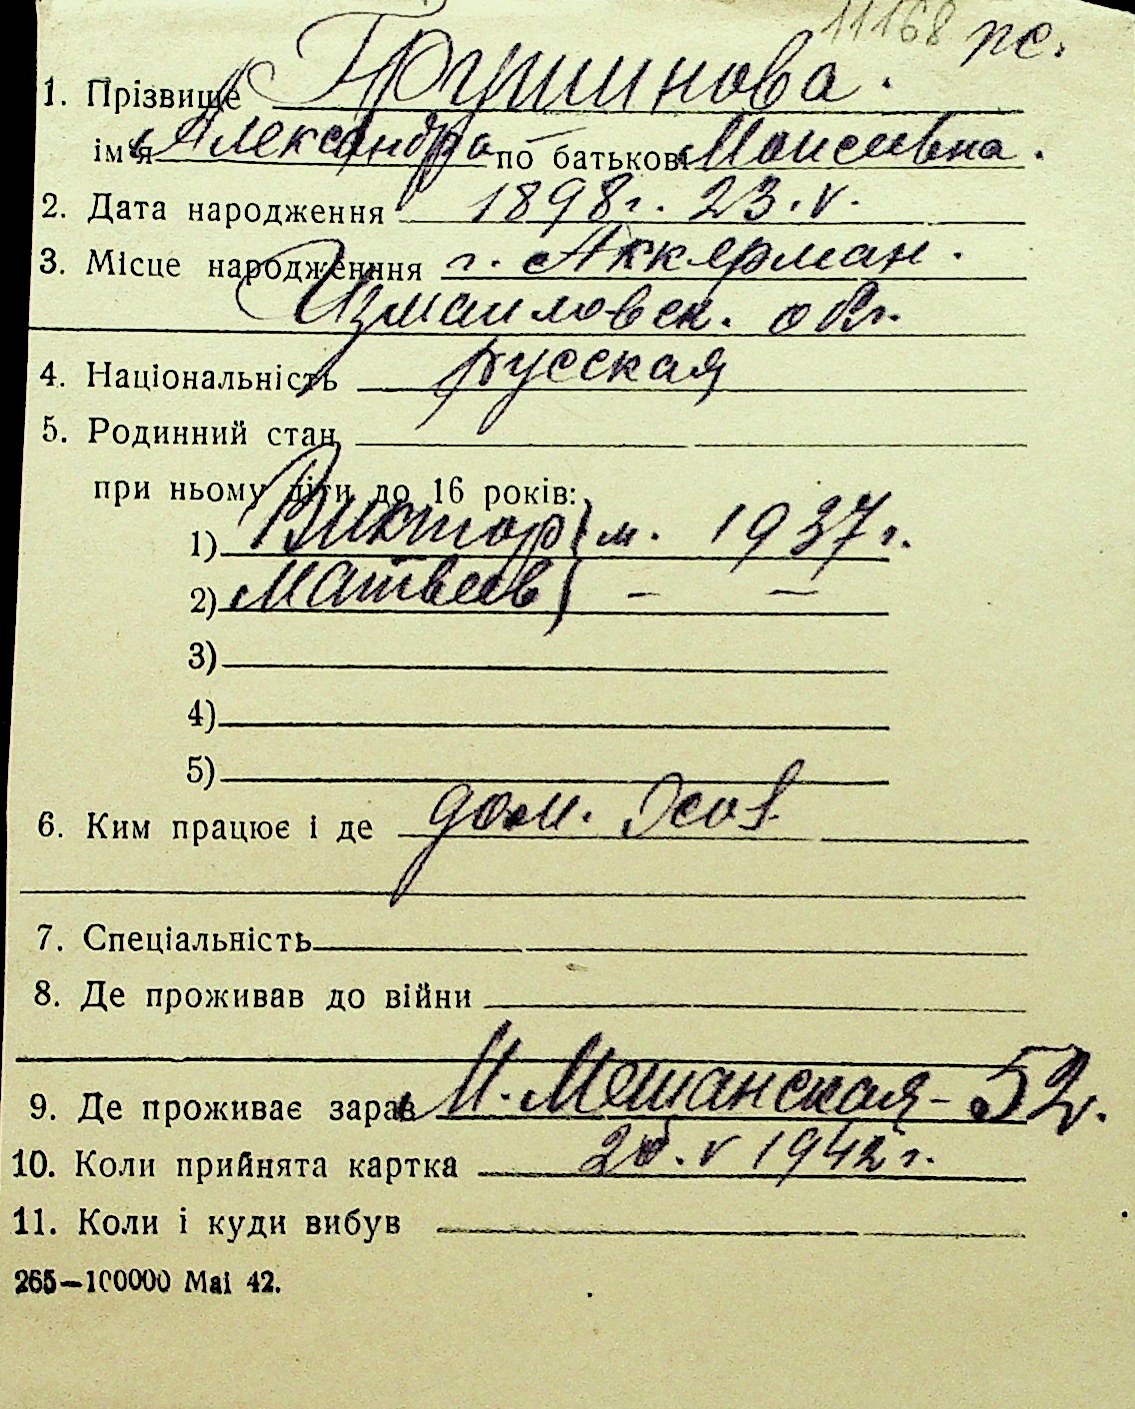 11168 рс.
1. Прізвище Грушинова.
ім'я Александра по батькові Моисеевна.
2. Дата народження 1898 г. 23.V.
3. Місце народженння г. Аккерман.
Измаиловск. обл.
4. Національність русская
5. Родинний стан
при ньому діти до 16 років:
1) Виктор } м. 1937 г.
2) Матвеев } – –
3)
4)
5)
6. Ким працює і де дом. хоз.
7. Спеціальність
8. Де проживав до війни
9. Де проживає зараз М. Мещанская - 52.
10. Коли прийнята картка V 1942 г.
11. Коли і куди вибув
265—100000 Mai 42.